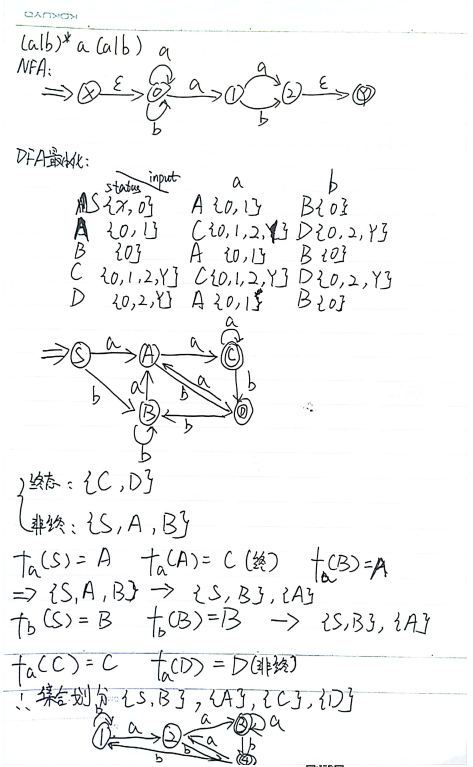 KOKUYO
(a|b)* a (a|b)
NFA:
⇒ X ε 0 a 1 a 2 ε Y
a
b
b
DFA最小化:
status input a b
S {X,0} A {0,1} B {0}
A {0,1} C {0,1,2,Y} D {0,2,Y}
B {0} A {0,1} B {0}
C {0,1,2,Y} C {0,1,2,Y} D {0,2,Y}
D {0,2,Y} A {0,1} B {0}
a
⇒ S a A a C
b a b a b
B b D
b
终态: {C,D}
非终: {S,A,B}
ta(S)=A ta(A)=C(终) ta(B)=A
⇒ {S,A,B} → {S,B},{A}
tb(S)=B tb(B)=B → {S,B},{A}
ta(C)=C ta(D)=D(非终)
∴ 集合划分 {S,B},{A},{C},{D}
b 1 a 2 a 3 a
b b a b
4